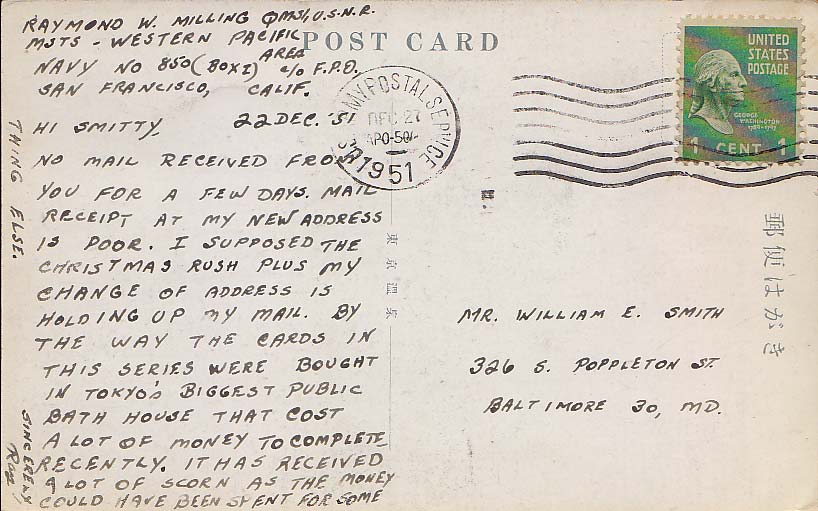 RAYMOND W. MILLING QMS1, U.S.N.R.
MSTS - WESTERN PACIFIC
AREA
NAVY NO 850 (BOX I) c/o F.P.O.
SAN FRANCISCO, CALIF.
POST CARD
HI SMITTY, 22 DEC. '51
NO MAIL RECEIVED FROM
YOU FOR A FEW DAYS. MAIL
RECEIPT AT MY NEW ADDRESS
IS POOR. I SUPPOSED THE
CHRISTMAS RUSH PLUS MY
CHANGE OF ADDRESS IS
HOLDING UP MY MAIL. BY
THE WAY THE CARDS IN
THIS SERIES WERE BOUGHT
IN TOKYO'S BIGGEST PUBLIC
BATH HOUSE THAT COST
A LOT OF MONEY TO COMPLETE
RECENTLY. IT HAS RECEIVED
A LOT OF SCORN AS THE MONEY
COULD HAVE BEEN SPENT FOR SOME
THING ELSE.
SINCERELY
Ray
POSTAL SERVICE
DEC 27
1951
UNITED
STATES
POSTAGE
GEORGE
WASHINGTON
1789-1797
1 CENT 1
東京温泉
郵便はがき
MR. WILLIAM E. SMITH
326 S. POPPLETON ST.
BALTIMORE 30, MD.